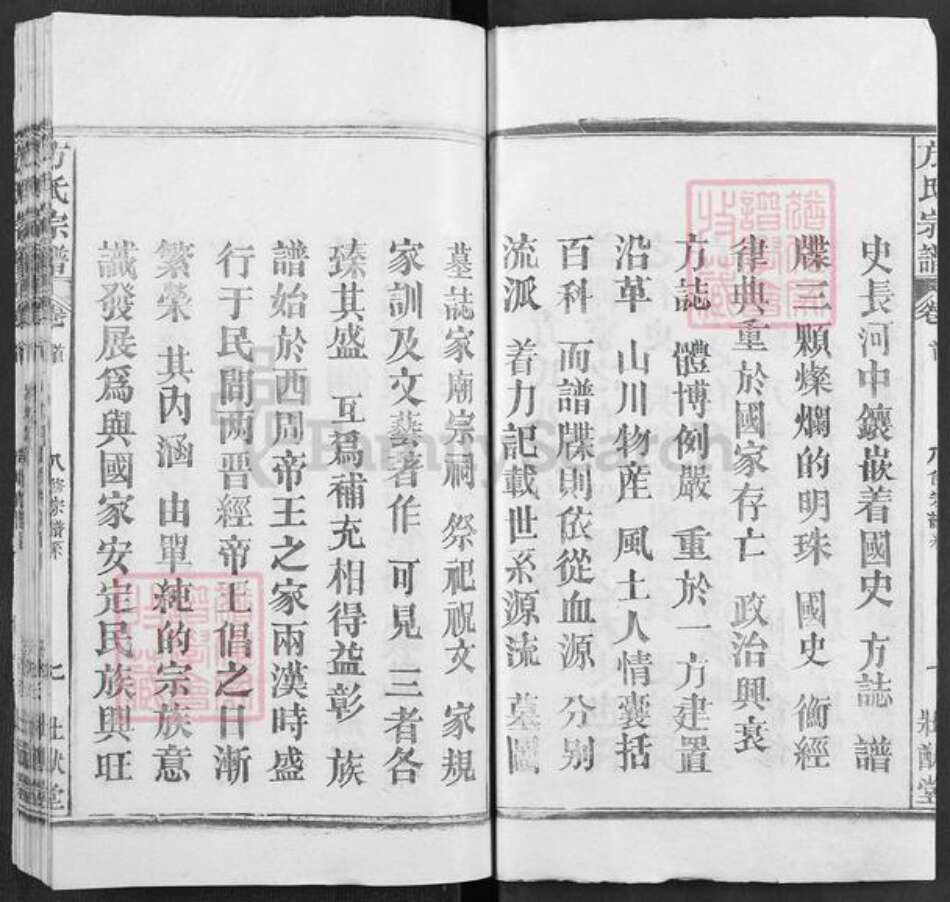 史長河中鑲嵌着國史 方誌 譜
牒三顆燦爛的明珠 國史 衡經
律典重於國家存亡 政治興衰
方誌 體博例嚴 重於一方建置
沿革 山川物産 風土人情囊括
百科 而譜牒則依從血源 分别
流派 着力記載世系源流 墓圖
墓誌家廟宗祠 祭祀祝文 家規
家訓及文藝著作 可見 三者各
臻其盛 互爲補充相得益彰 族
譜始於西周帝王之家兩漢時盛
行于民間两晋經帝王倡之日漸
繁榮 其内涵 由單純的宗族意
識發展爲與國家安定民族興旺
方氏宗譜 卷首 八修宗譜序 七 壯猷堂
方氏宗譜 卷首 壯猷堂
FamilySearch